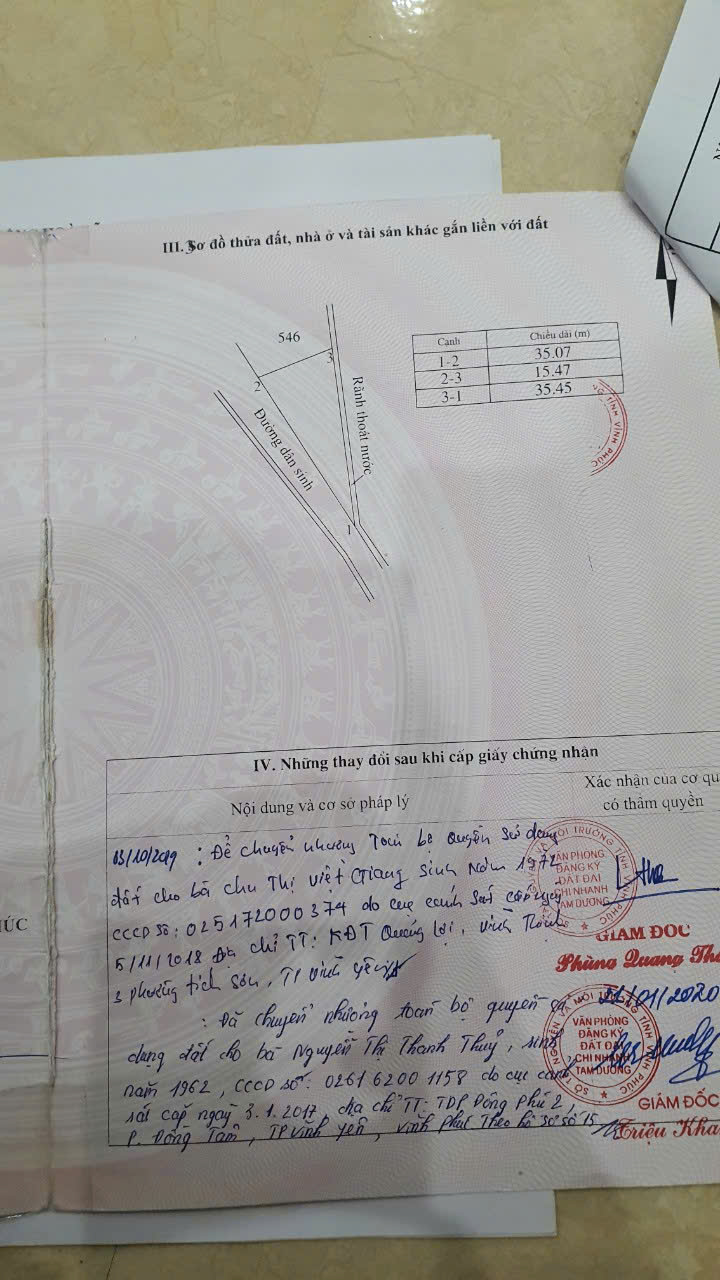 III. Sơ đồ thửa đất, nhà ở và tài sản khác gắn liền với đất
546
3
2
1
Đường dân sinh
Rãnh thoát nước
Cạnh Chiều dài (m)
1-2 35.07
2-3 15.47
3-1 35.45
TỈNH VĨNH PHÚC
IV. Những thay đổi sau khi cấp giấy chứng nhận
Nội dung và cơ sở pháp lý
Xác nhận của cơ qu
có thẩm quyền
ÚC
03/10/2019 : Để chuyển nhượng toàn bộ quyền sử dụng
đất cho bà Chu Thị Việt Giang sinh năm 1972
CCCD số: 025172000374 do cục cảnh sát cấp ngày
5/11/2018 Địa chỉ TT: KĐT Quảng Lợi,
phường Tích Sơn, TP Vĩnh Yên
VĂN PHÒNG
ĐĂNG KÝ
ĐẤT ĐAI
CHI NHÁNH
TAM DƯƠNG
GIÁM ĐỐC
Phùng Quang Th
21/01/2020
: Đã chuyển nhượng toàn bộ quyền sử
dụng đất cho bà Nguyễn Thị Thanh Thuỷ, sinh
năm 1962, CCCD số: 026162001158 do cục cảnh
sát cấp ngày 3.1.2017, địa chỉ TT: TDP Đông Phú 2,
P. Đồng Tâm, TP Vĩnh Yên, Vĩnh Phúc Theo hồ sơ số 15
VĂN PHÒNG
ĐĂNG KÝ
ĐẤT ĐAI
CHI NHÁNH
TAM DƯƠNG
GIÁM ĐỐC
Triệu Kha